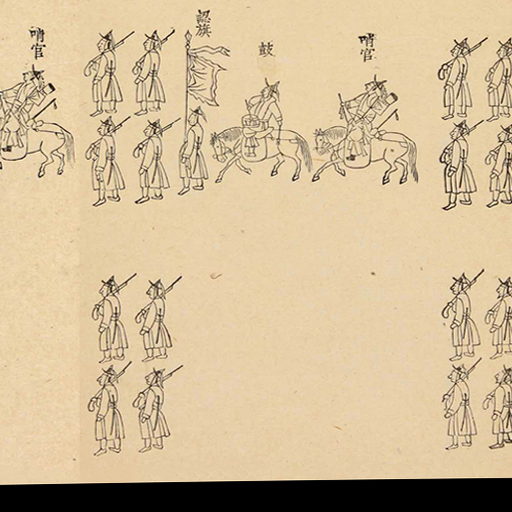 哨官
鼓
認旗
哨官